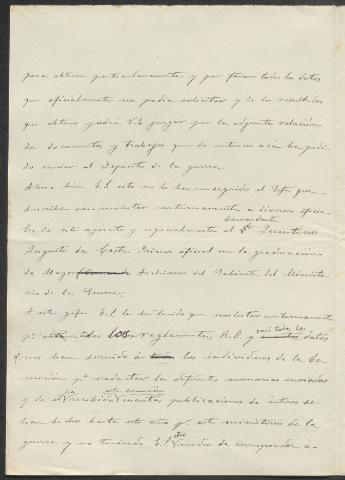 para obtener particularmente y por favor todos los datos
que oficialmente no podia solicitar y de los resultados
que obtuvo podrá V.E. juzgar por la adjunta relación
de documentos y trabajos que de entonces acá ha podi-
do enviar al Depósito de la guerra.
Ahora bien E.S. esto no lo ha conseguido el Gefe que
suscribe sin molestar continuamente a diversos oficia-
les de este ejército y especialmente al
Comandante
Augusto da Costa primer oficial con la graduación
de Mayor Archivero del Gabinete del Ministe-
rio de la Guerra.
A este gefe E.S. le he tenido que molestar continuamente
pª los reglamentos, R.D. y casi todos los datos
que han servido á los individuos de la Co-
misión pª redactar las diferentes memorias enviadas
y de él ha recibido esta comisión cuantas publicaciones de interes se
han hecho hasta este año pr este ministerio de la
guerra y no teniendo E.S. otro medio de corresponder á